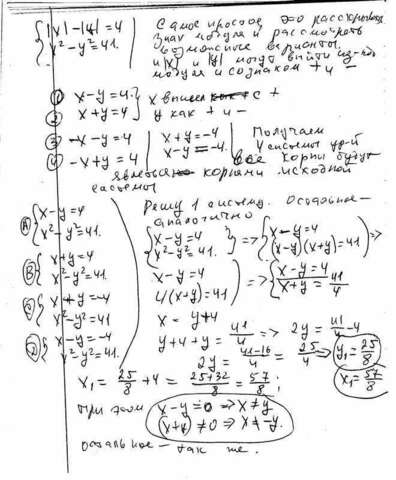 {|x|-|y|=4
x²-y²=41.
Самое простое это рассмотреть
знак модуля и рассмотреть
возможные варианты
и |x| и |y| могут выйти из-под
модуля и со знаком + и -
① x-y=4. } x вышел с +
② x+y=4 } y как + и -
③ -x-y=4 | x+y=-4
④ -x+y=4 | x-y=-4.
Получаем
4 системы ур-й
все корни будут
являться корнями исходной
системы
Ⓐ { x-y=4
x²-y²=41.
Ⓑ { x+y=4
x²-y²=41.
Ⓒ { x+y=-4
x²-y²=41
Ⓓ { x-y=-4
x²-y²=41.
Решу 1 систему. Остальное -
аналогично
{ x-y=4
x²-y²=41. } => { x-y=4
(x-y)(x+y)=41 } =>
x-y=4
4(x+y)=41 } => { x-y=4
x+y=41/4
x=y+4
y+4+y=41/4 => 2y=41/4-4
2y=(41-16)/4=25/4 => y₁=25/8
x₁=25/8+4=(25+32)/8=57/8; x₁=57/8
при этом x-y≠0 => x≠y
(x+y)≠0 => x≠-y.
остальное - так же.